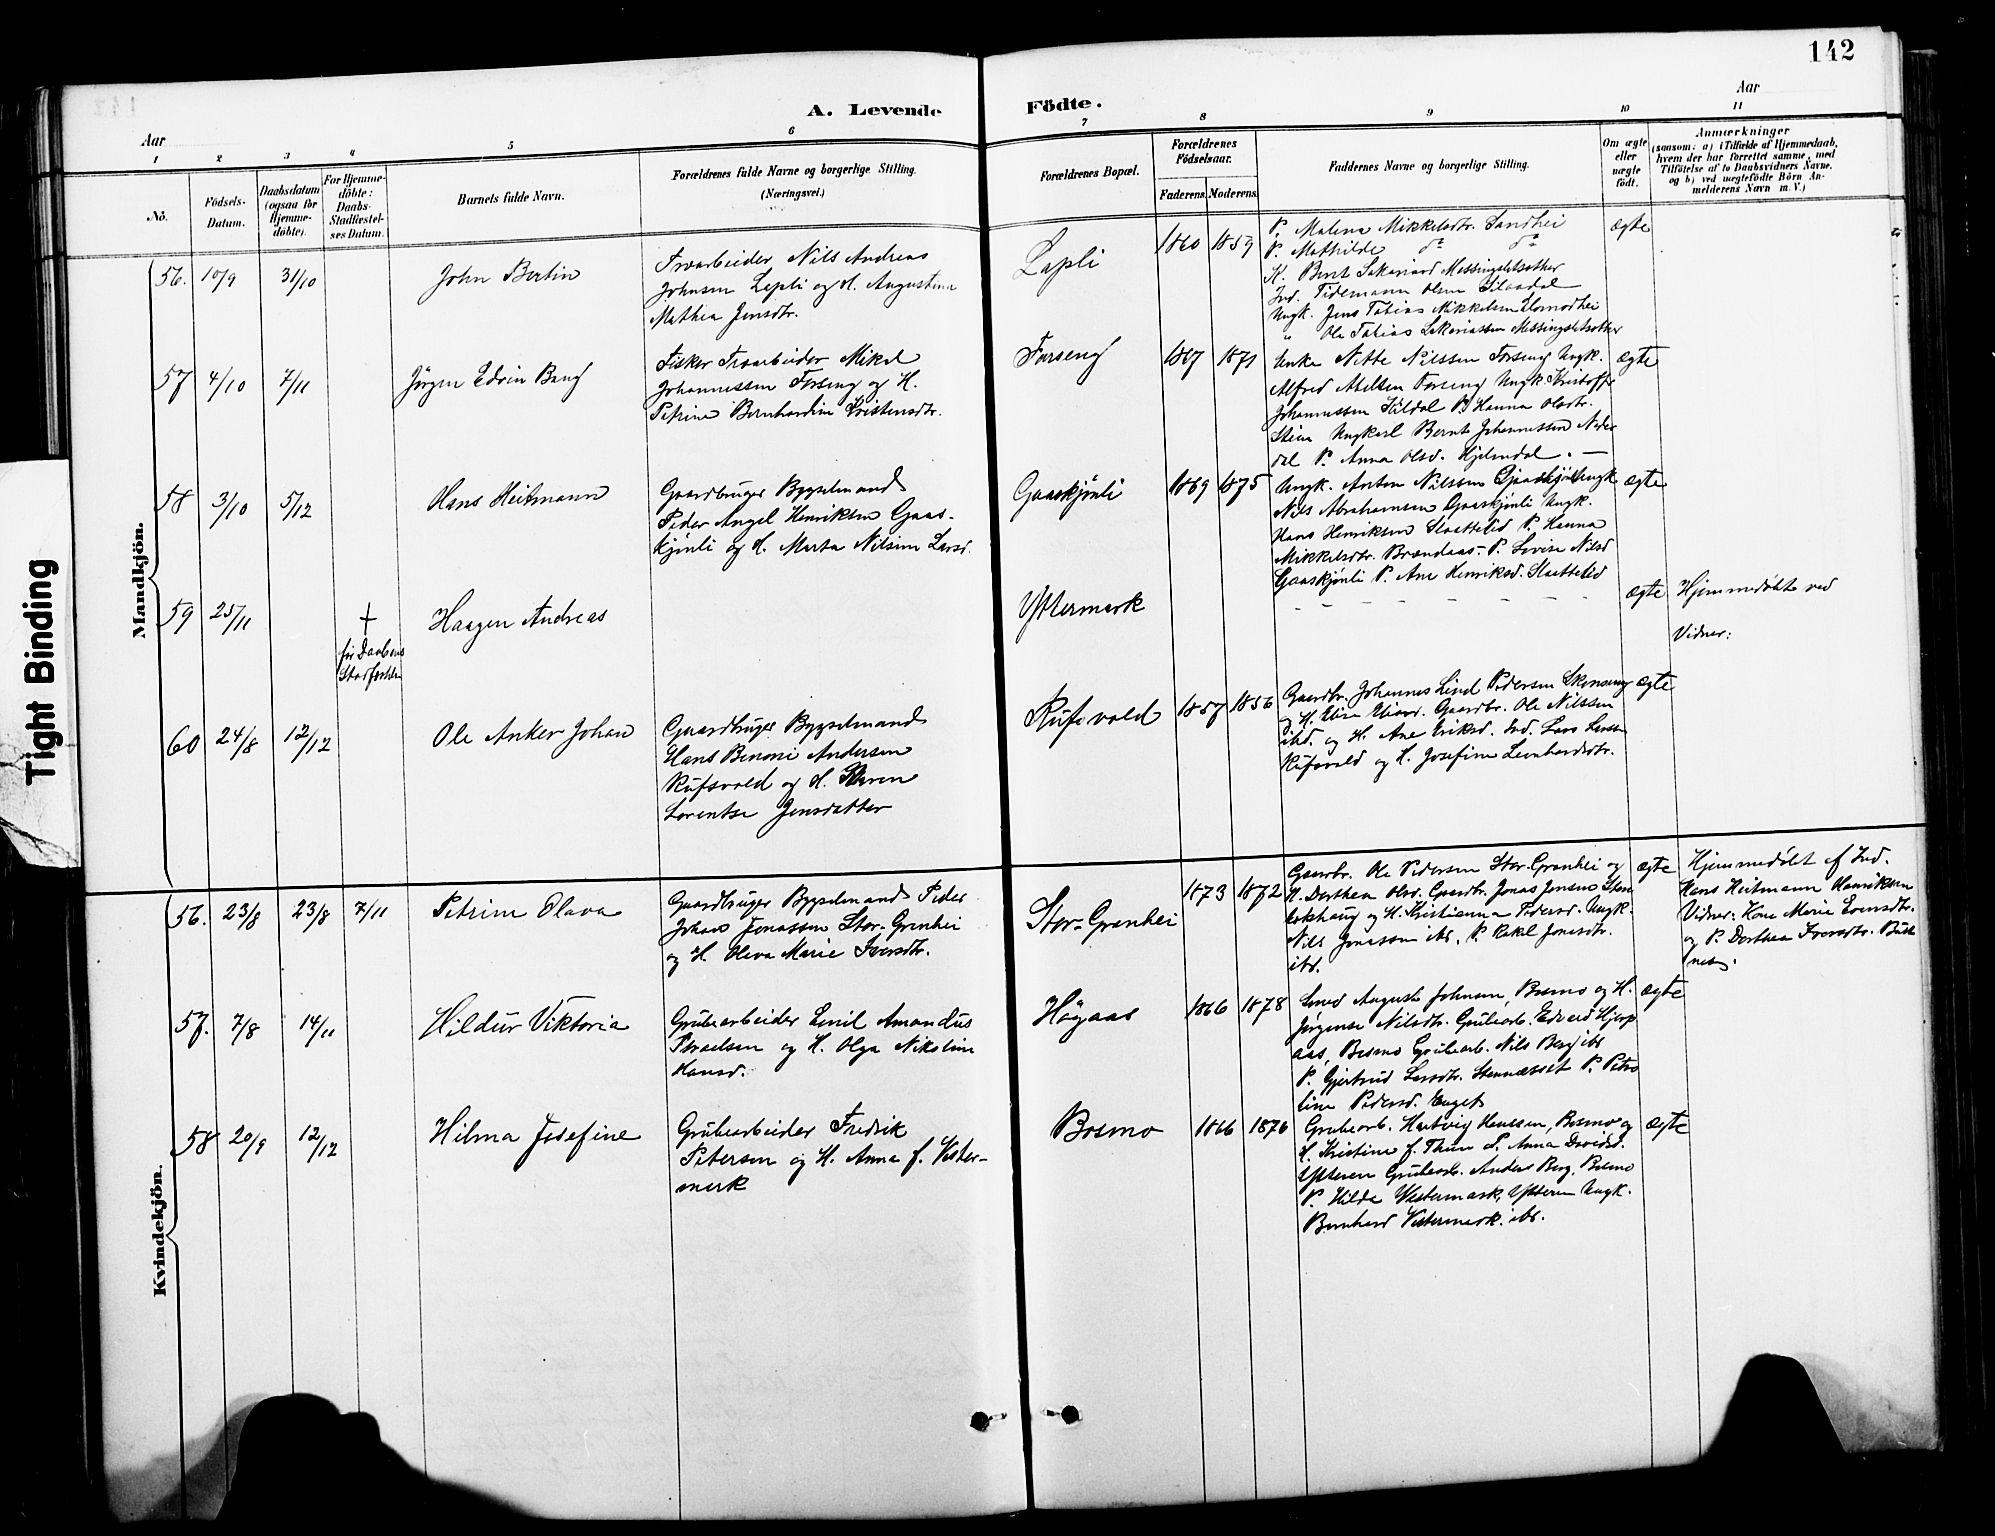 142
A. Levende Födte.
Aar
Aar
1 2 3 4 5 6 7 8 9 10 11
No.
Födsels-Datum.
Daabsdatum (ogsaa for Hjemme-döbte).
For Hjemme-döbte: Daabs-Stadfæstel-ses Datum.
Barnets fulde Navn.
Forældrenes fulde Navne og borgerlige Stilling.
(Næringsvei.)
Forældrenes Bopæl.
Forældrenes Födselsaar.
Faderens. Moderens.
Faddernes Navne og borgerlige Stilling.
Om ægte eller uægte födt.
Anmærkninger
(saasom: a) i Tilfælde af Hjemmedaab,
hvem der har forrettet samme, med
Tilföielse af to Daabsvidners Navne.
og b) ved uægtefödte Börn An-
melderens Navn m. V.)
Tight Binding
Mandkjön.
56. 10/9 31/10 John Bertin
Træarbeider Nils Andreas
Johnsen Lapli og H. Augustina
Mathea Jensdtr.
Lapli 1860 1859
P. Malena Mikkelsdtr. Sandhei
P. Mathilde do do
K. Bernt Sakariasd Messingsletsather
Ind. Tidemann Olsen
Ungk. Jens Tobias Mikkelsen
" Ole Tobias Sakariassen Messingsletsather
ægte
57 4/10 7/11 Jörgen Edvin Bang
Fisker Træarbeider Mikal
Johannessen Forseng og H.
Petrine Bernhardine Kristensdtr.
Forseng 1867 1871
Enke Nitte Nilssen Forseng Ungk.
Alfred Axelsen Forseng Ungk. Kristoffer
Johannessen P. Hanna Olsdtr.
Stien Ungkarl Bernt Johannessen Neder
dal P. Anna Olsd. Hjelmdal. –
ægte
58 3/10 5/12 Hans Heitmann
Gaardbruger Bygselmand
Peder Angel Henriksen Gaas-
kjønli og H. Marta Nilsine Larsd.
Gaaskjønli 1869 1875
Ungk. Anton Nilssen Gaaskjønli Ungk
Nils Abrahamsen Gaaskjønli Ungk.
Hans Henriksen Slaettelid P. Hanna
Mikkelsdtr. Brændaas – P. Lovise Nilsd
Gaaskjønli P. Ane Henriksd. Slaettelid
ægte
59 25/11 + før Daabens Stadfæstelse
Haagen Andreas
Yttermark
– – – – – – –
ægte
Hjemmedøbt ved
Vidner:
60 24/8 12/12 Ole Anker Johan
Gaardbruger Bygselmand
Hans Benoni Andersen
Rufsvold og H. Maren
Lorentse Jensdatter
Rufsvold 1857 1856
Gaardbr. Johannes Lind Pedersen Skonseng
og H. Gaardbr. Ole Nilssen
ibd. og H. Ane Eriksd. Ind. Lars Larssen
Rufsvold og H. Josefine Leonhardsdtr.
ægte
Kvindekjön.
56. 23/8 23/8 7/11 Petrine Olava
Gaardbruger Bygselmand Peder
Johan Jonassen Stor-Grønhei
og H. Oleva Marie Iversdtr.
Stor-Grønhei 1873 1872
Gaardbr. Ole Pedersen Stor-Grønhei og
H. Dorthea Olsd. Gaardbr. Jonas Jensen Store
og H. Kristianna Pedersd. Ungk.
Nils Jonassen ibd. P. Rakel Jonasdtr.
ibd.
ægte
Hjemmedøbt af Ind.
Hans Heitmann Henriksen
Vidner: Kone Marie Evensdtr.
og P. Dorthea Iversdtr.
57. 7/8 14/11 Hildur Viktoria
Grubearbeider Emil Amandus
Israelsen og H. Olga Nikoline
Hansd.
Høgaas 1866 1878
Smed August Johnsen, Bosmo og H.
Jørgense Nilsdtr. Grubearb. Edvard Hjerp
aas, Bosmo Grubearb. Nils Berg ibd
P. Gjertrud Larsdtr. Stennæsset P. Petro
line Pedersd. Enget
ægte
58 20/9 12/12 Hilma Josefine
Grubearbeider Fredrik
Petersen og H. Anna f. Vester-
mark
Bosmo 1866 1876
Grubearb. Hartvig Hanssen, Bosmo og
H. Kristine f. Thun P. Anna Davidsd.
Ytteren Grubearb. Anders Berg, Bosmo
P. Hilda Vestermark, Ytteren Ungk.
Bernhard Vestermark ibd.
ægte